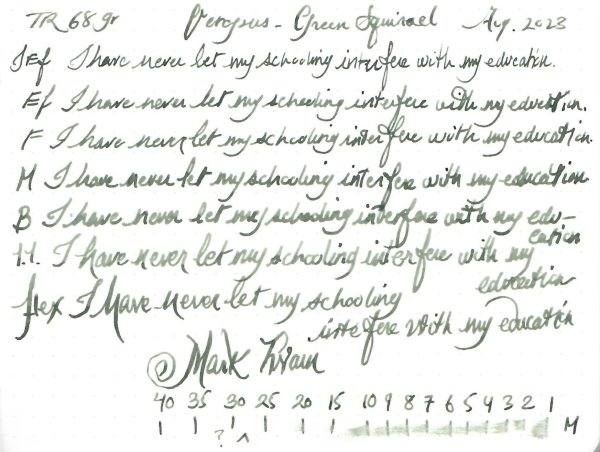 TR 68gr Octopus - Green Squirrel Aug. 2023
JEf I have never let my schooling interfere with my education.
Ef I have never let my schooling interfere with my education.
F I have never let my schooling interfere with my education.
M I have never let my schooling interfere with my education
B I have never let my schooling interfere with my edu-
cation
1.1. I have never let my schooling interfere with my
education
flex I have never let my schooling
interfere with my education
© Mark Twain
40 35 30 25 20 15 10 9 8 7 6 5 4 3 2 1
? ^ M